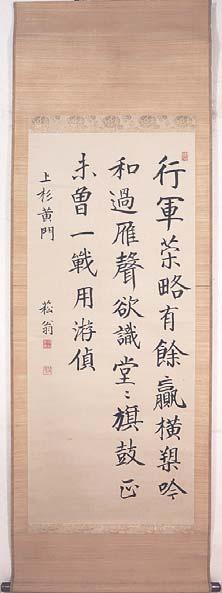 行軍策略有餘贏橫槊吟
和過雁聲欲識堂〻旗鼓正
未曽一戰用游偵
上杉黄門
菘翁